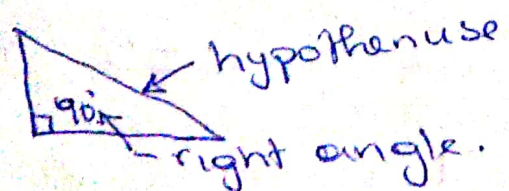 hypothenuse
90°
right angle.